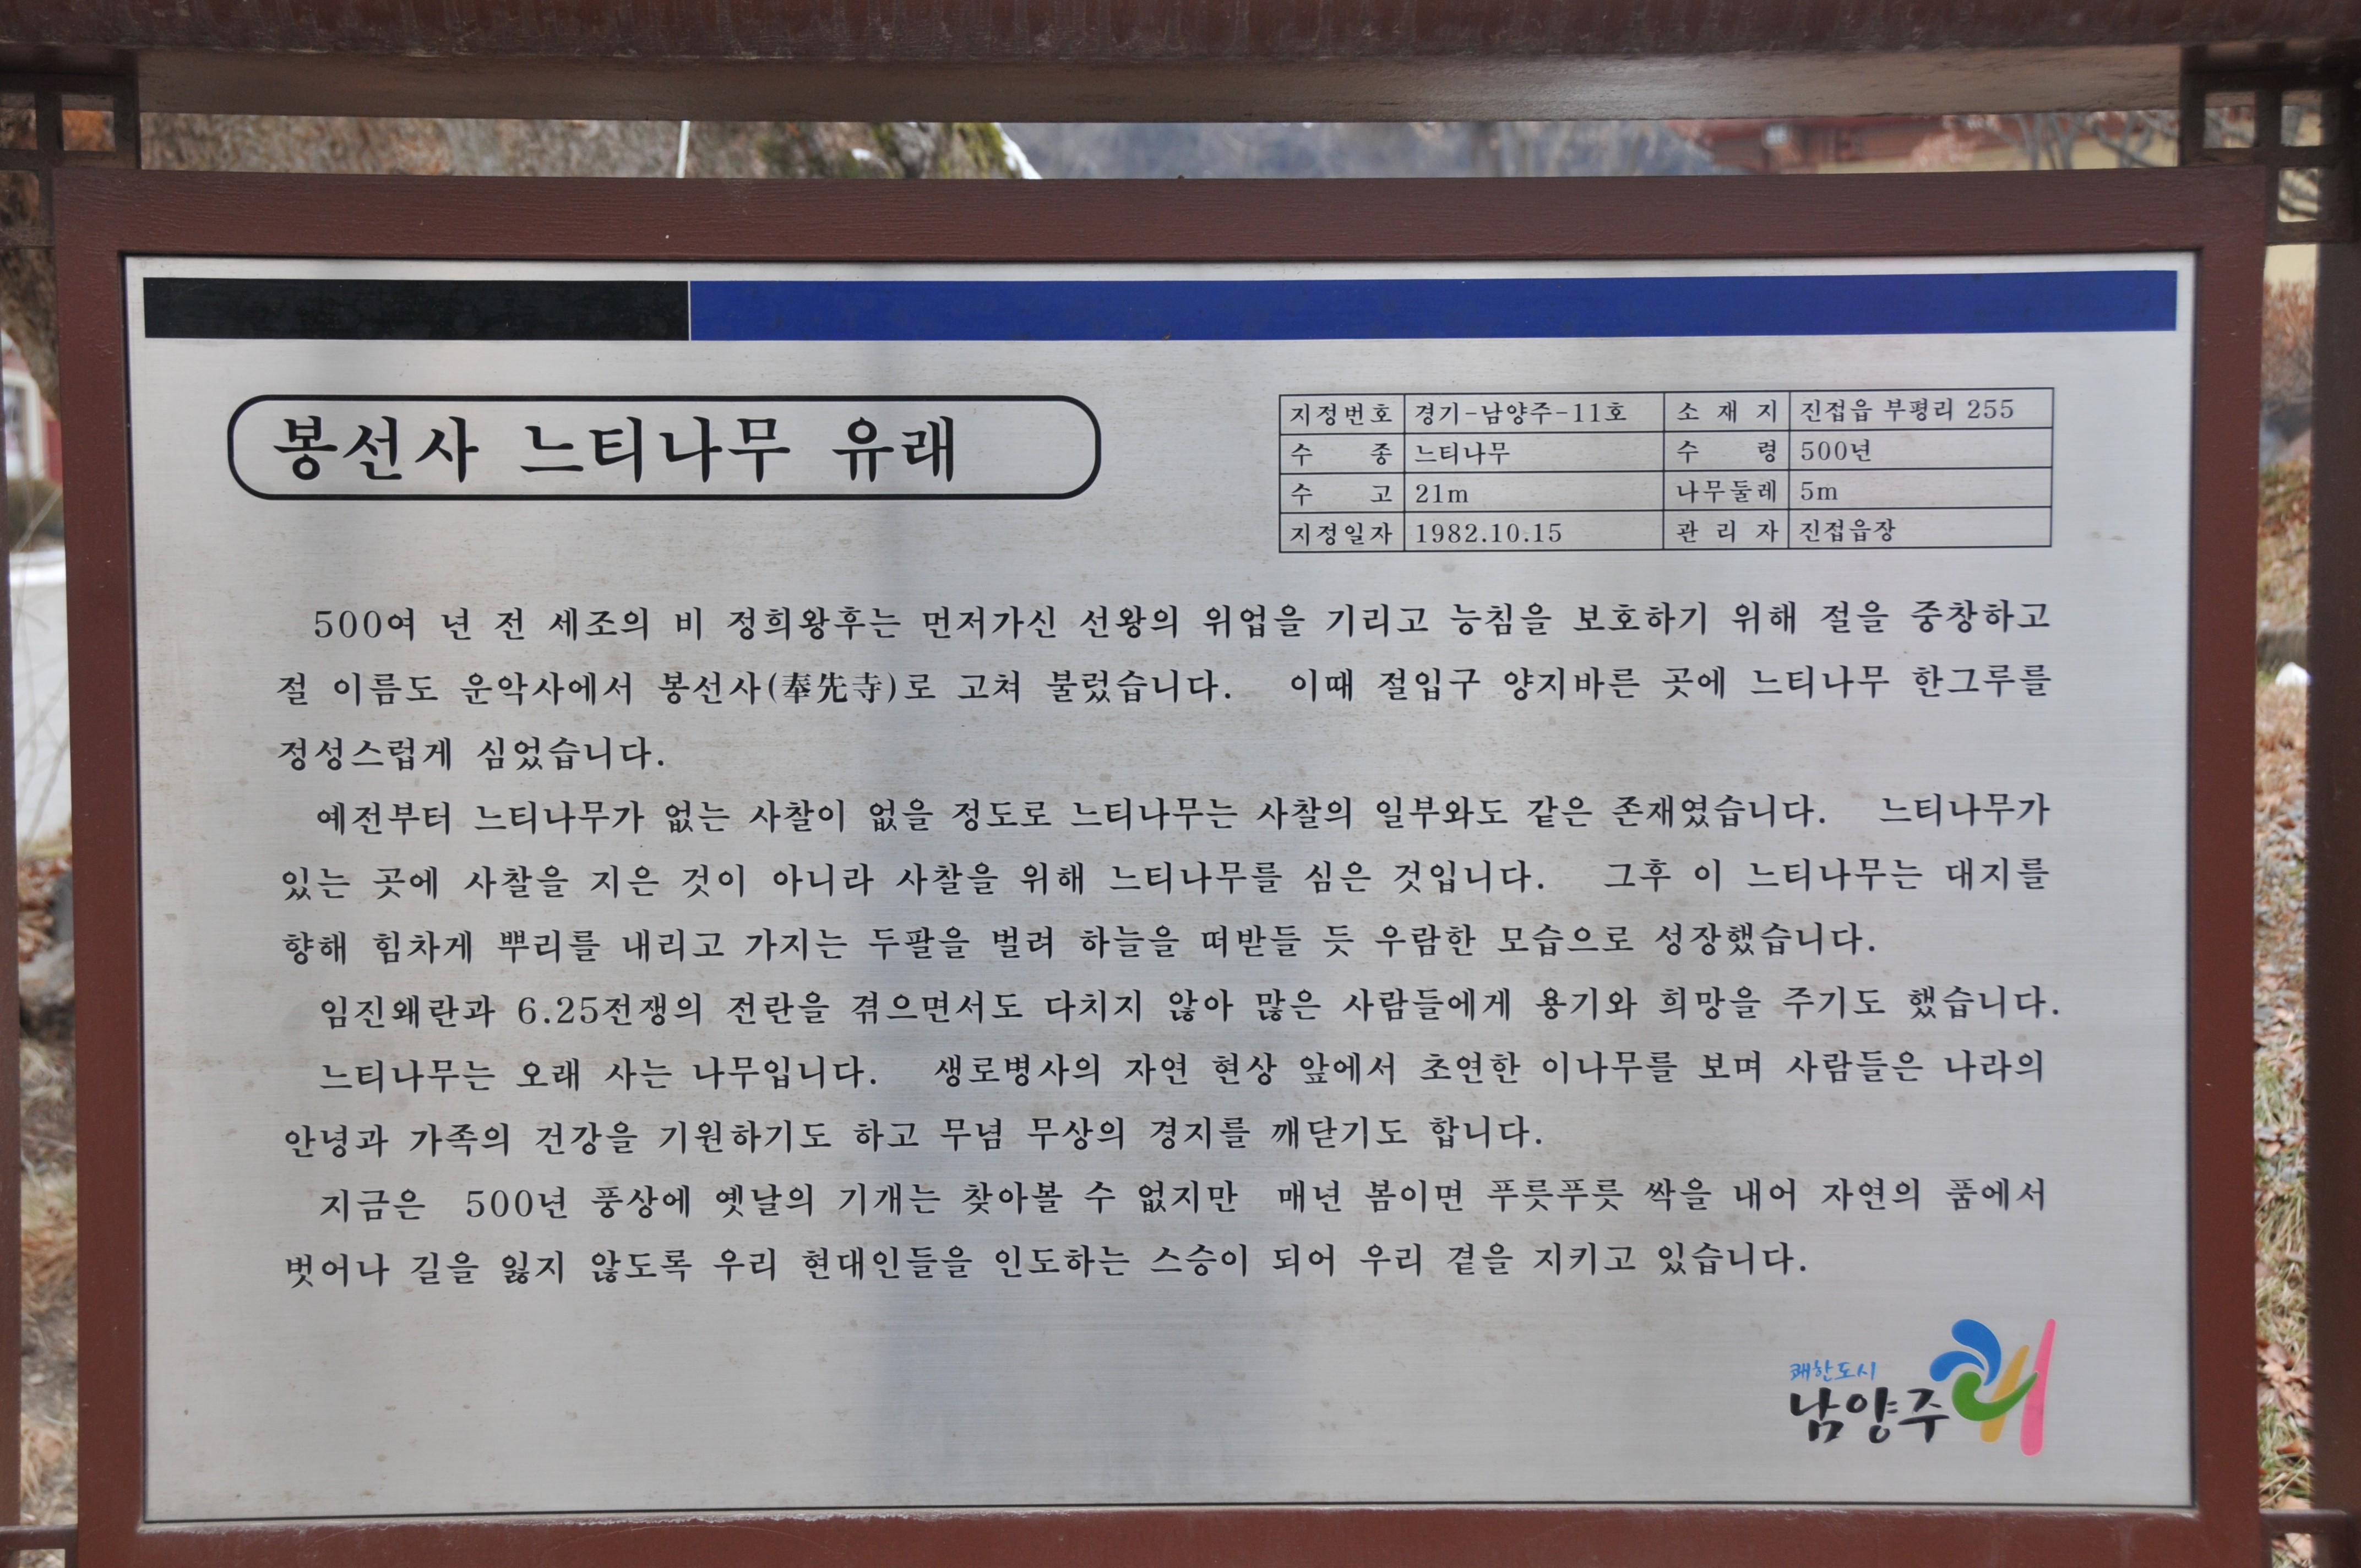 봉선사 느티나무 유래
지정번호 경기-남양주-11호 소 재 지 진접읍 부평리 255
수 종 느티나무 수 령 500년
수 고 21m 나무둘레 5m
지정일자 1982.10.15 관 리 자 진접읍장
500여 년 전 세조의 비 정희왕후는 먼저가신 선왕의 위업을 기리고 능침을 보호하기 위해 절을 중창하고
절 이름도 운악사에서 봉선사(奉先寺)로 고쳐 불렀습니다. 이때 절입구 양지바른 곳에 느티나무 한그루를
정성스럽게 심었습니다.
예전부터 느티나무가 없는 사찰이 없을 정도로 느티나무는 사찰의 일부와도 같은 존재였습니다. 느티나무가
있는 곳에 사찰을 지은 것이 아니라 사찰을 위해 느티나무를 심은 것입니다. 그후 이 느티나무는 대지를
향해 힘차게 뿌리를 내리고 가지는 두팔을 벌려 하늘을 떠받들 듯 우람한 모습으로 성장했습니다.
임진왜란과 6.25전쟁의 전란을 겪으면서도 다치지 않아 많은 사람들에게 용기와 희망을 주기도 했습니다.
느티나무는 오래 사는 나무입니다. 생로병사의 자연 현상 앞에서 초연한 이나무를 보며 사람들은 나라의
안녕과 가족의 건강을 기원하기도 하고 무념 무상의 경지를 깨닫기도 합니다.
지금은 500년 풍상에 옛날의 기개는 찾아볼 수 없지만 매년 봄이면 푸릇푸릇 싹을 내어 자연의 품에서
벗어나 길을 잃지 않도록 우리 현대인들을 인도하는 스승이 되어 우리 곁을 지키고 있습니다.
쾌한도시
남양주